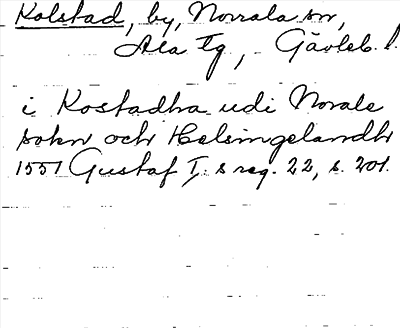 Kolstad, by, Norrala sn,
Ala tg, Gävleb. l.
i Kostadha udi Norale
sokn och Helsingelandh
1551 Gustaf I:s reg. 22, s. 201.